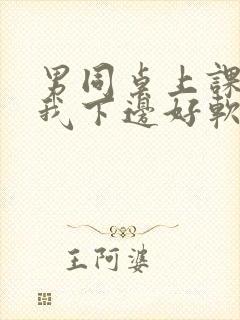 男同桌上課
我下邊好軟
王阿婆